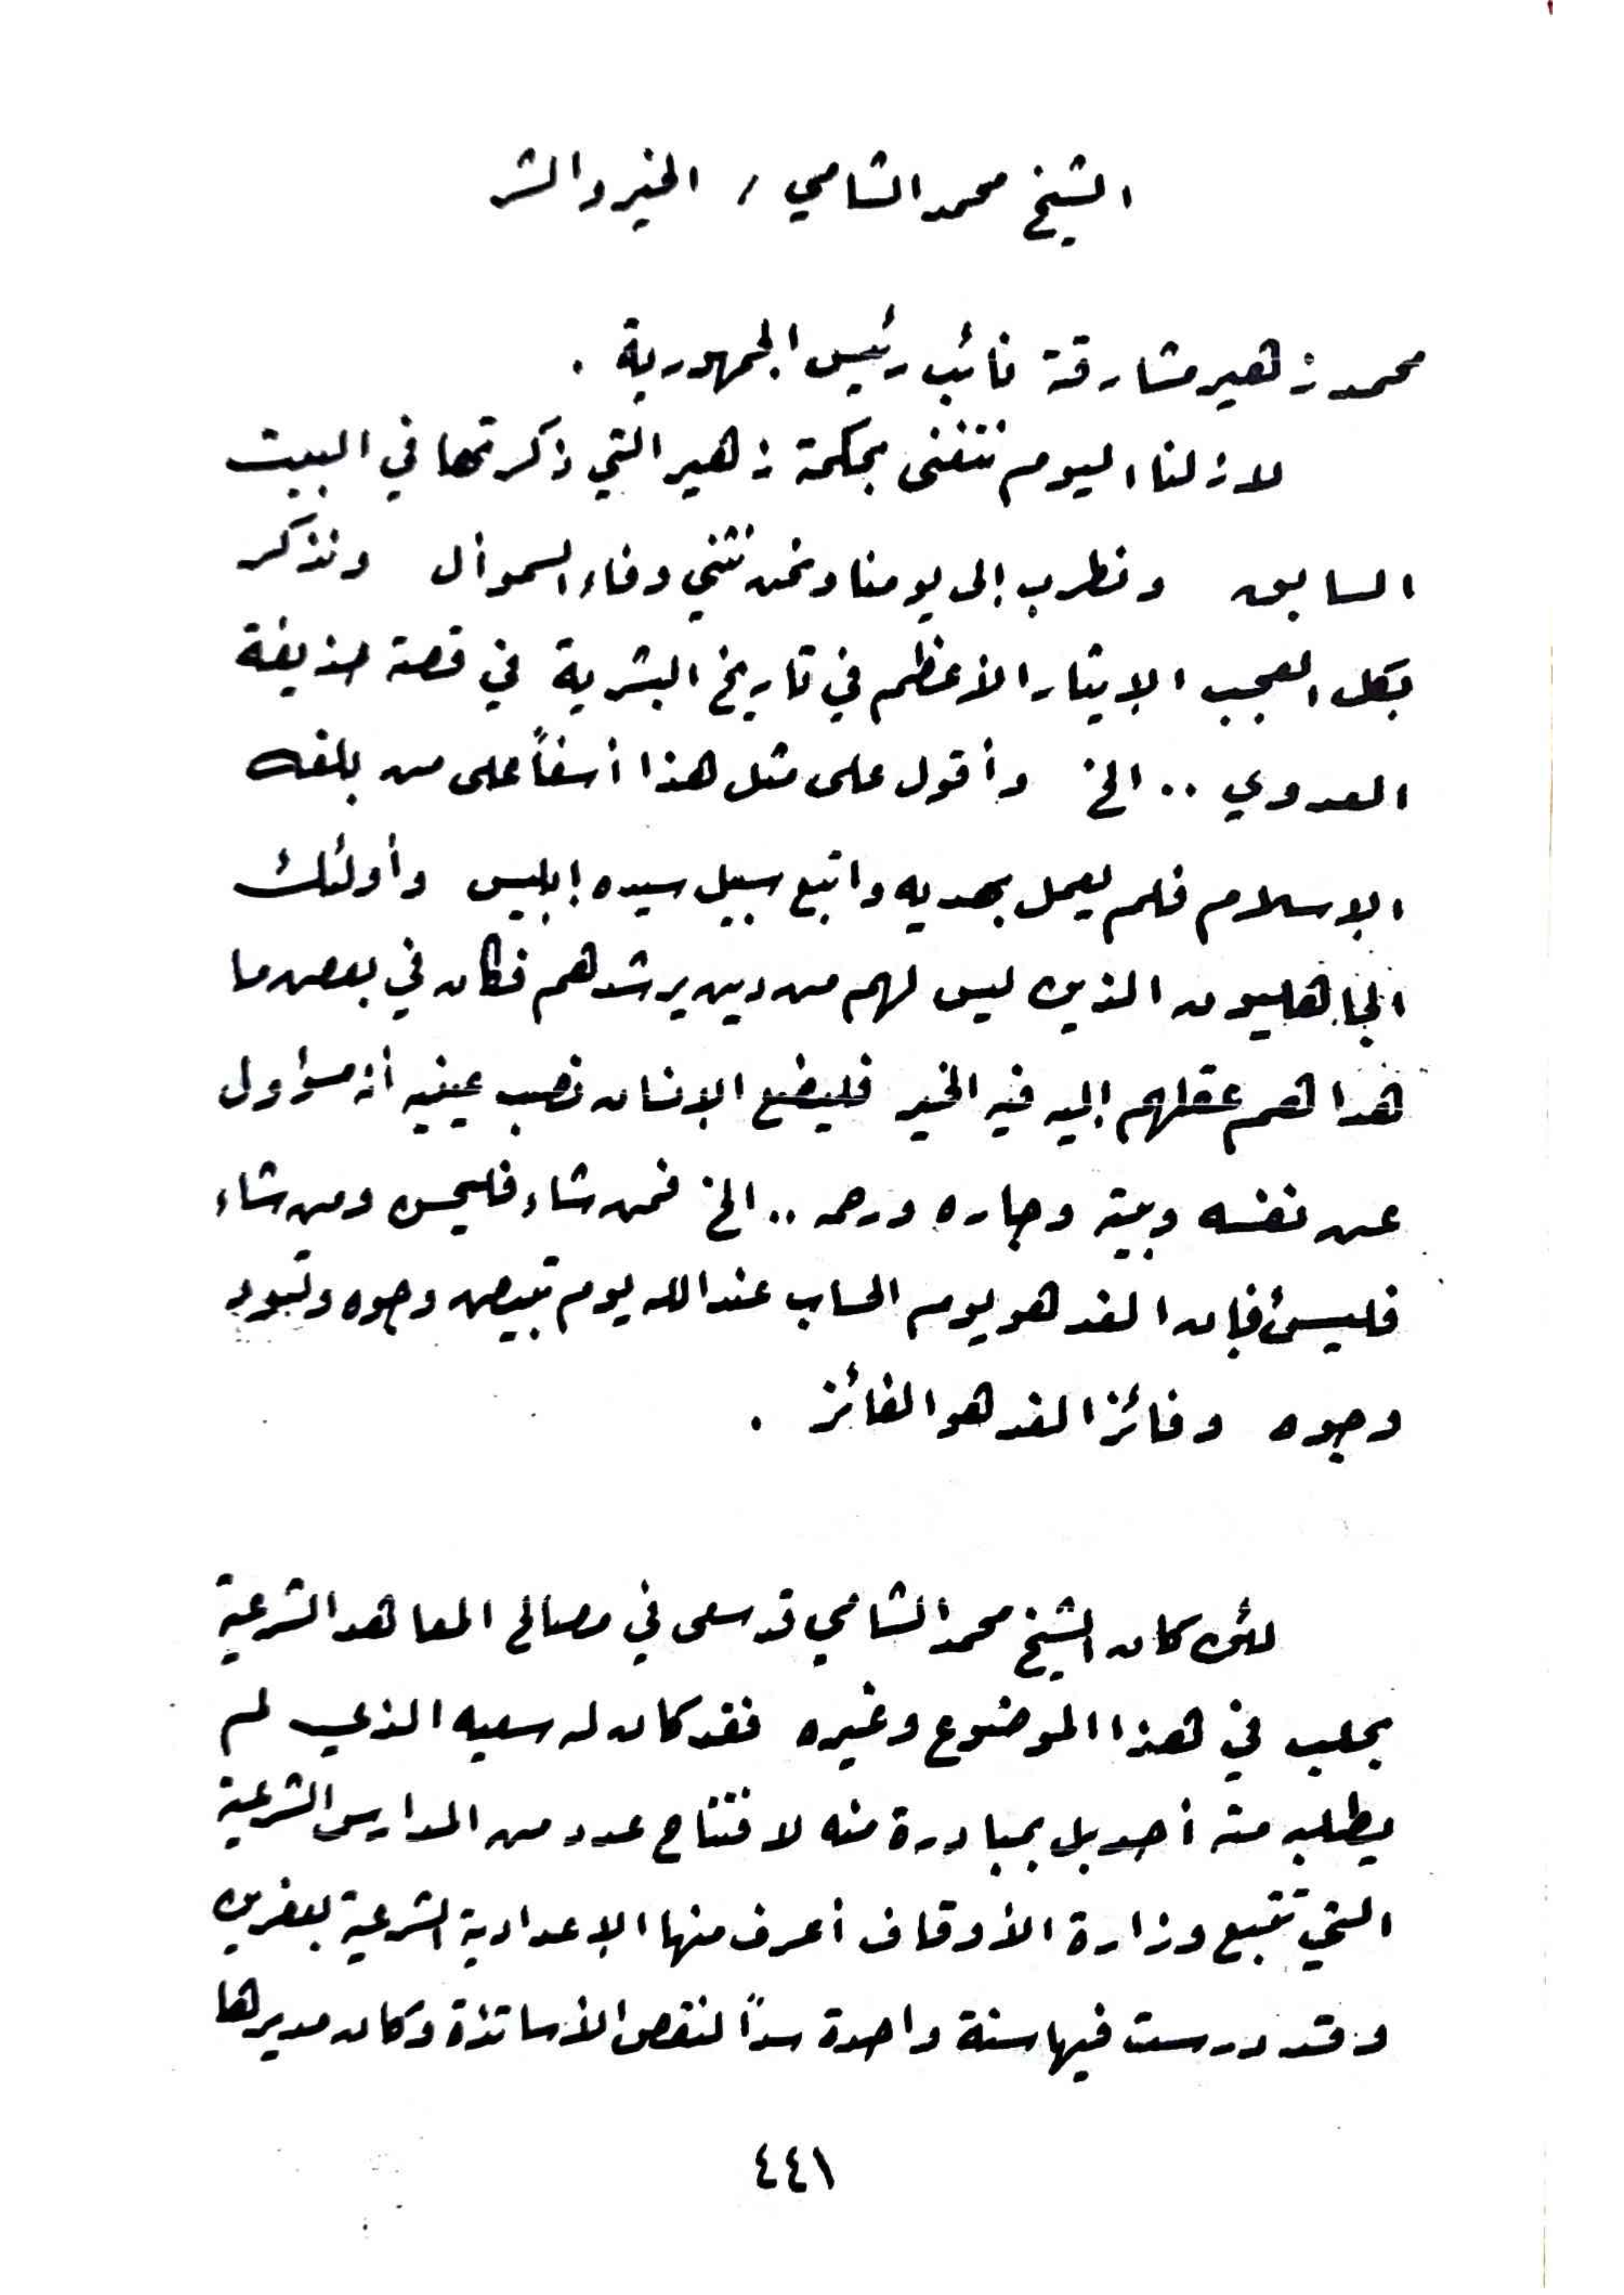 الشيخ محمد الشامي / الخير والشر
محمد زهير مشارقة نائب رئيس الجمهورية .
لازلنا اليوم نتغنى بحكمة زهير التي ذكرتها في البيت
السابق ونطرب إلى يومنا ونحن نثني وفاء السموأل ونذكر
بكل العجب الإيثار الأعظم في تاريخ البشرية في قصة حذيفة
العدوي .. الخ وأقول على مثل هذا أسفاً على من بلغه
الإسلام فلم يعمل بهديه واتبع سبيل سيده إبليس وأولئك
الجاهليون الذين ليس لهم من دين يرشدهم فكان في بعض ما
هداهم عقلهم إليه فيه الخير فليضع الإنسان نصب عينيه أنه مسؤول
عن نفسه وبيته وجاره ورحمه .. الخ فمن شاء فليحسن ومن شاء
فليسئ فإن الغد هو يوم الحساب عند الله يوم تبيض وجوه وتسود
وجوه وفائز الغد هو الفائز .
لئن كان الشيخ محمد الشامي قد سعى في مصالح المعاهد الشرعية
بحلب في هذا الموضوع وغيره فقد كان له سعيه الذي لم
يطلبه منه أحد بل بمبادرة منه لافتتاح عدد من المدارس الشرعية
التي تتبع وزارة الأوقاف أعرف منها الإعدادية الشرعية بعفرين
وقد درست فيها سنة واحدة سداً لنقص الأساتذة وكان مديرها
٤٤١